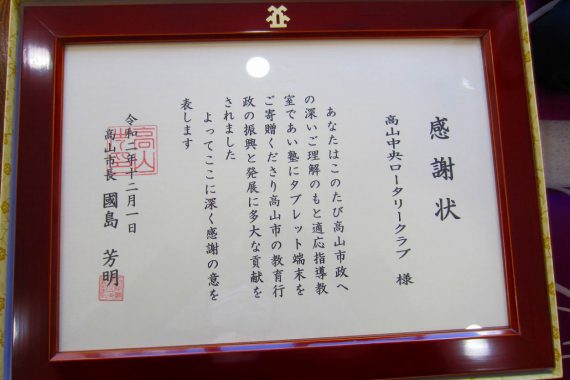 感謝状
高山中央ロータリークラブ 様
あなたはこのたび高山市政へ
の深いご理解のもと適応指導教
室であい塾にタブレット端末を
ご寄贈くださり高山市の教育行
政の振興と発展に多大な貢献を
されました
よってここに深く感謝の意を
表します
令和二年十二月一日
高山市長 國島 芳明